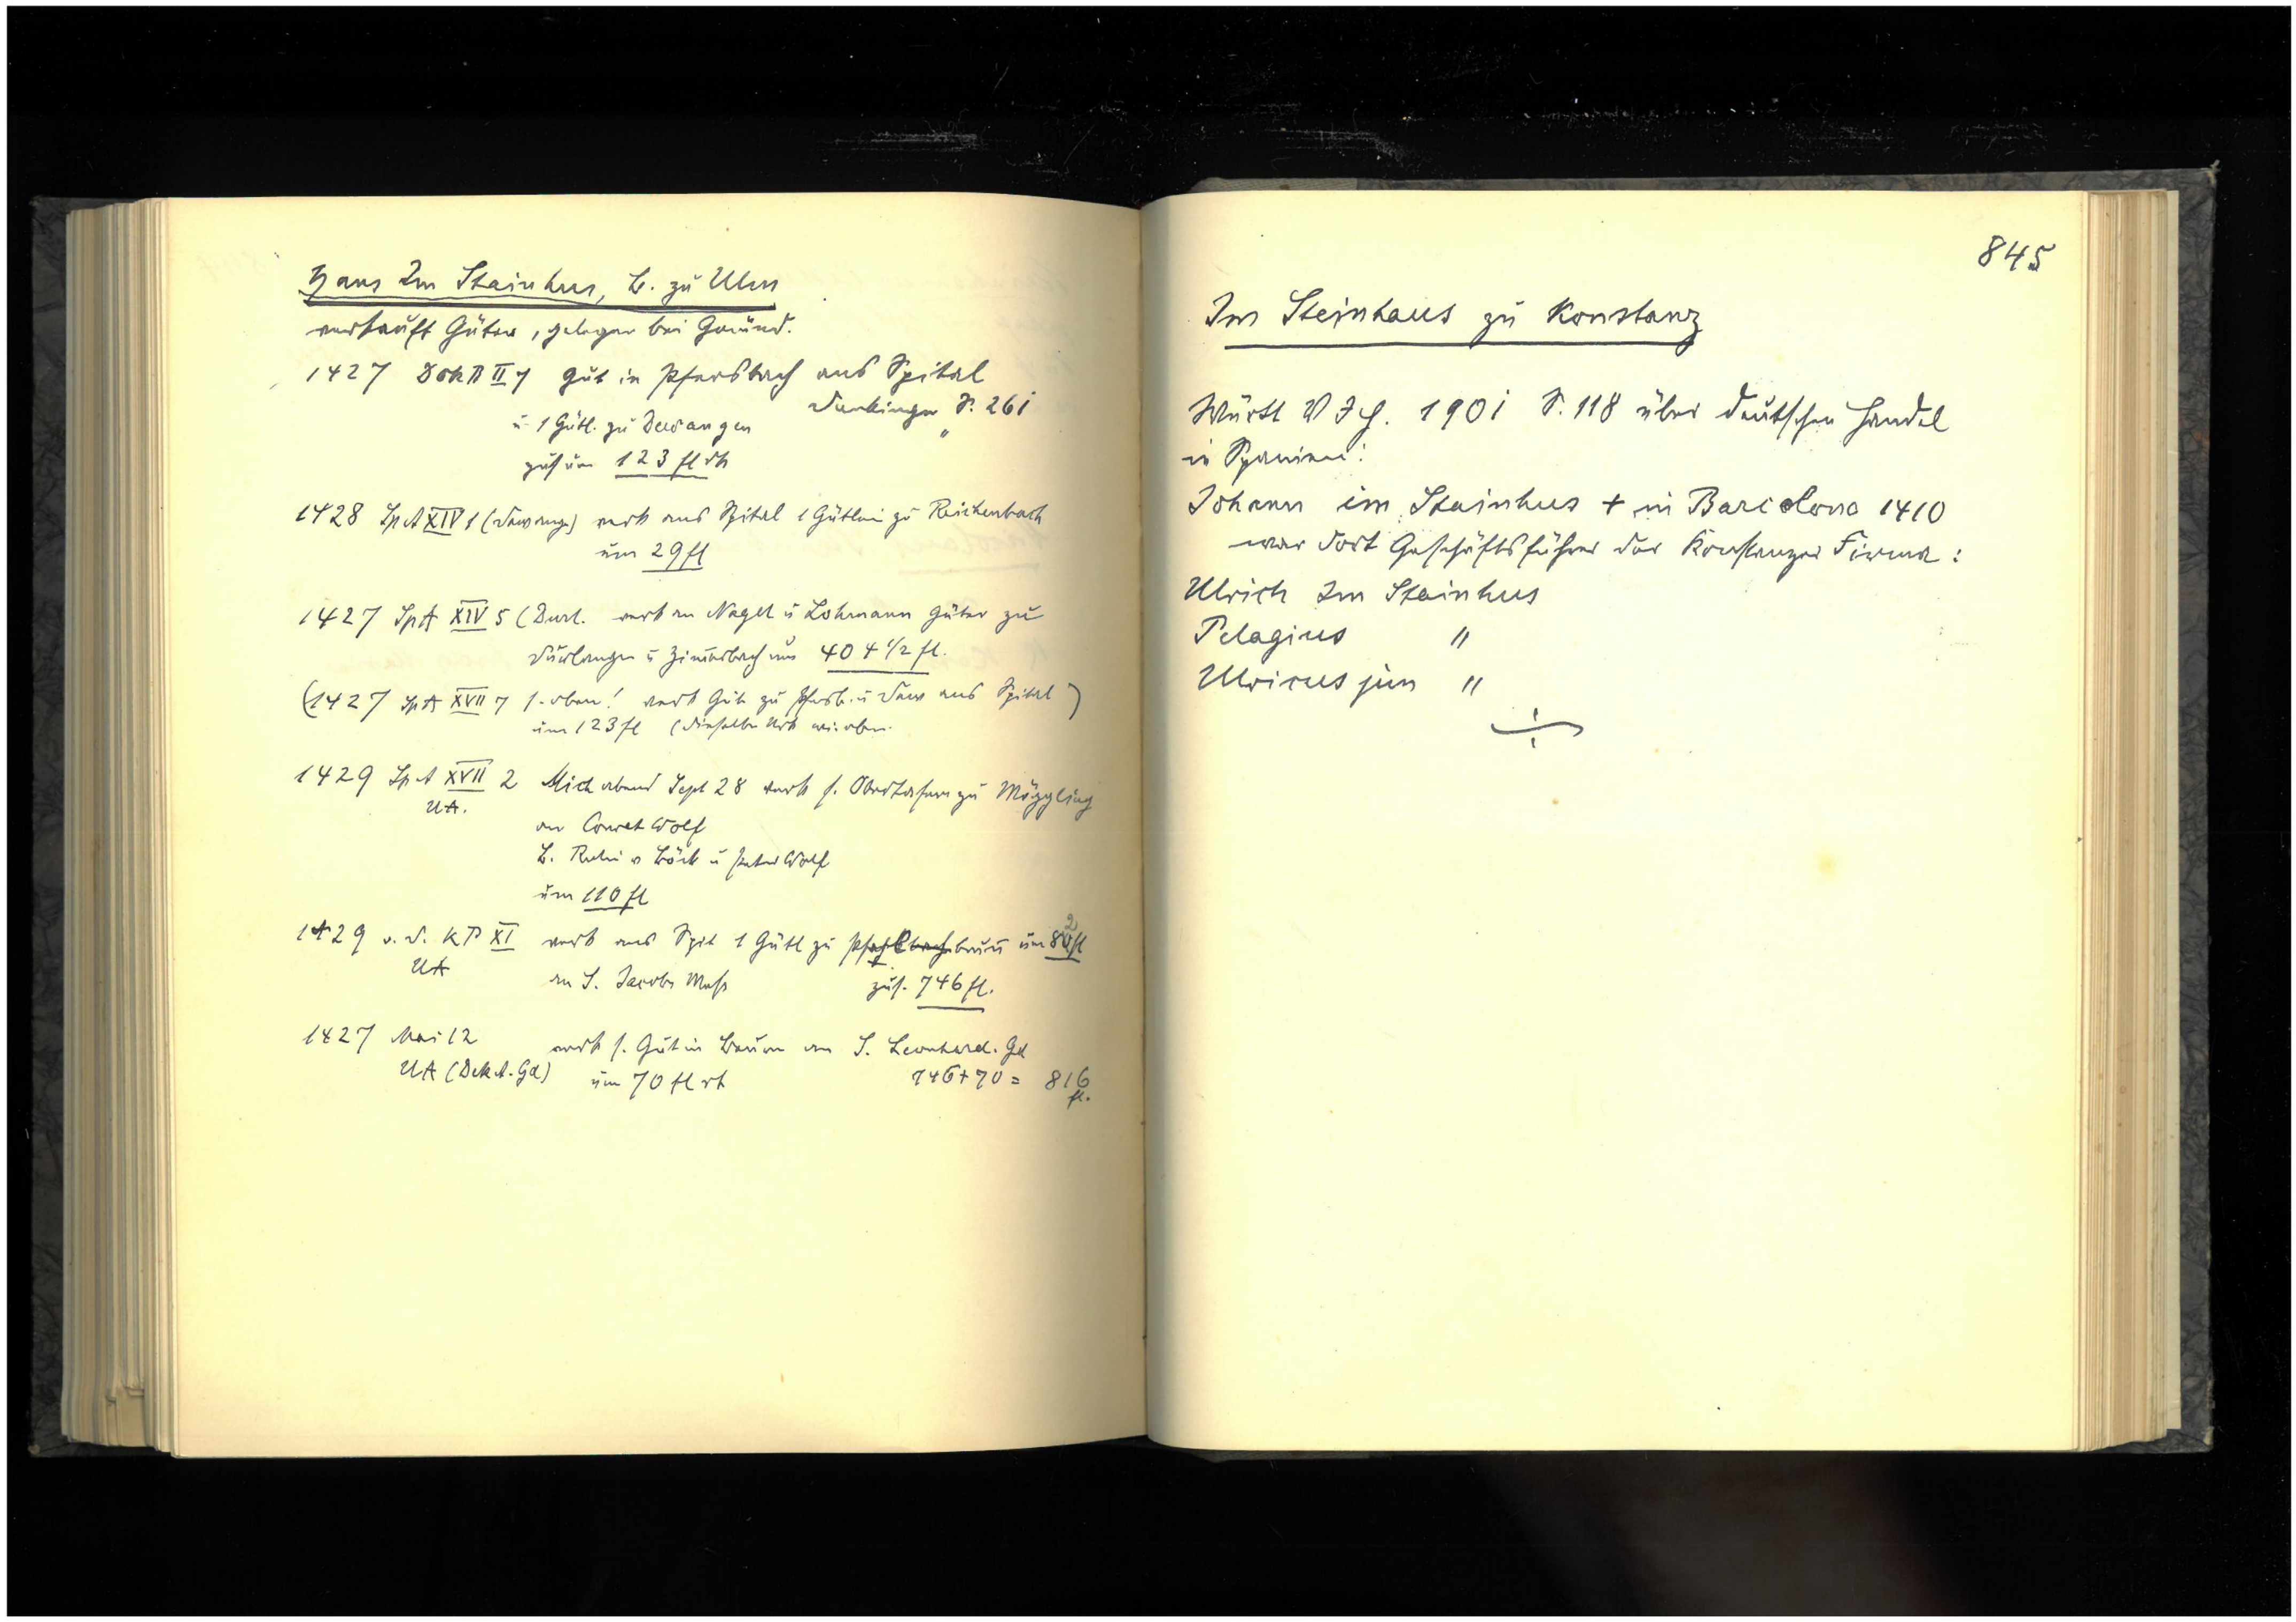 Hans Im Stainhus, B. zu Ulm
verkauft Güter, gelegen bei Gmünd.
1427 II 7 Gut in Pfersbach ans Spital
S. 261
u 1 Gütl. zu Dewangen
zus um 123 fl rh
1428 SpA XIV 1 (Dewangen) verk ans Spital 1 Gütlein zu Reichenbach
um 29 fl
1427 SpA XIV 5 (Durl. verk an Nagel u Lohmann Güter zu
Durlangen u Zimerbach um 404 1/2 fl.
(1427 SpA XVII 7 s. oben! verk Gut zu Pfersb. u Dew ans Spital)
um 123 fl (dieselbe Urk wie oben.
1429 SpA XVII 2 Mich abend Sept 28 verk s. zu Möggling
UA.
an Conret Wolf
B. u Peter Wolf
um 110 fl
1429 XI verk ans Spit 1 Gütl zu um fl
UA
an S. Jacobs Mess zus. 746 fl.
1427 Mai 12 verk s. Gut in an S. Leonhard. Gd
UA (Dek A. Gd) um 70 fl rh 746 + 70 = 816
fl.
845
Im Steinhaus zu Konstanz
Württ V Jh. 1901 S. 118 über deutschen Handel
in Spanien:
Johann im Stainhus + in Barcelona 1410
war dort Geschäftsführer der Konstanzer Firma:
Ulrich Im Stainhus
Pelagius "
Ulricus jun "